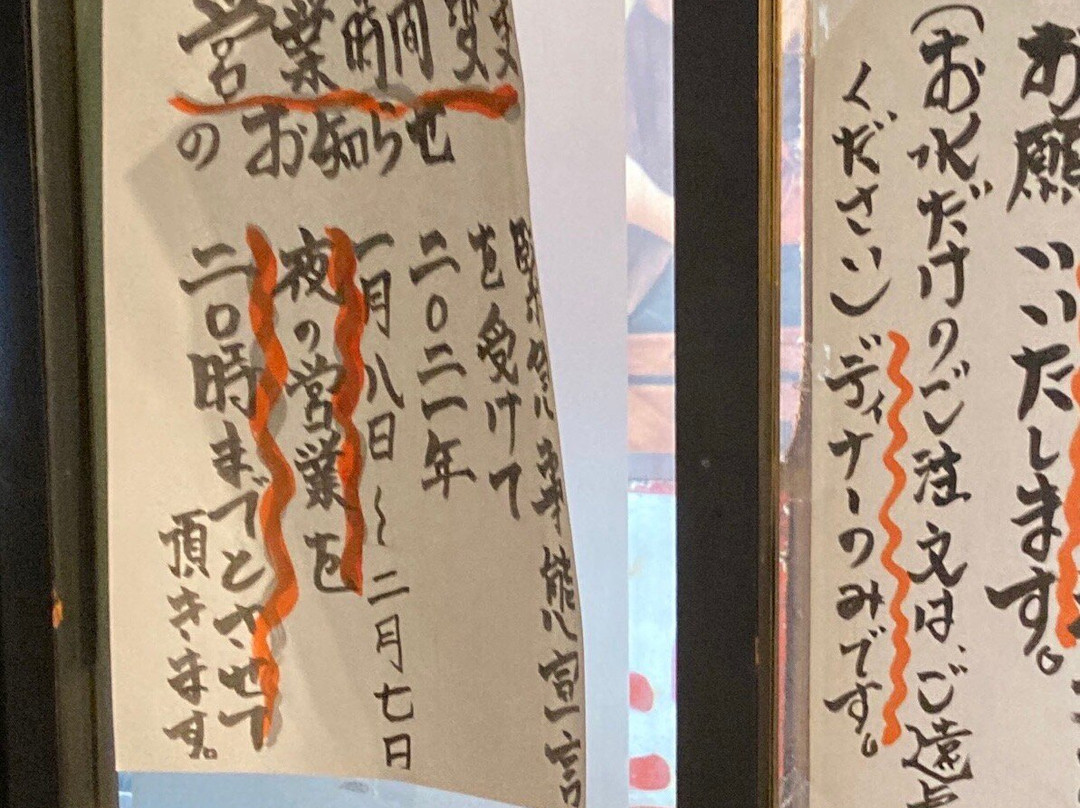 営業時間変更
のお知らせ
緊急事態宣言
を受けて
二〇二一年
一月八日～二月七日
夜の営業を
二〇時までとさせて
頂きます。
お願いいたします。
(お水だけのご注文は、ご遠
ください)ディナーのみです。